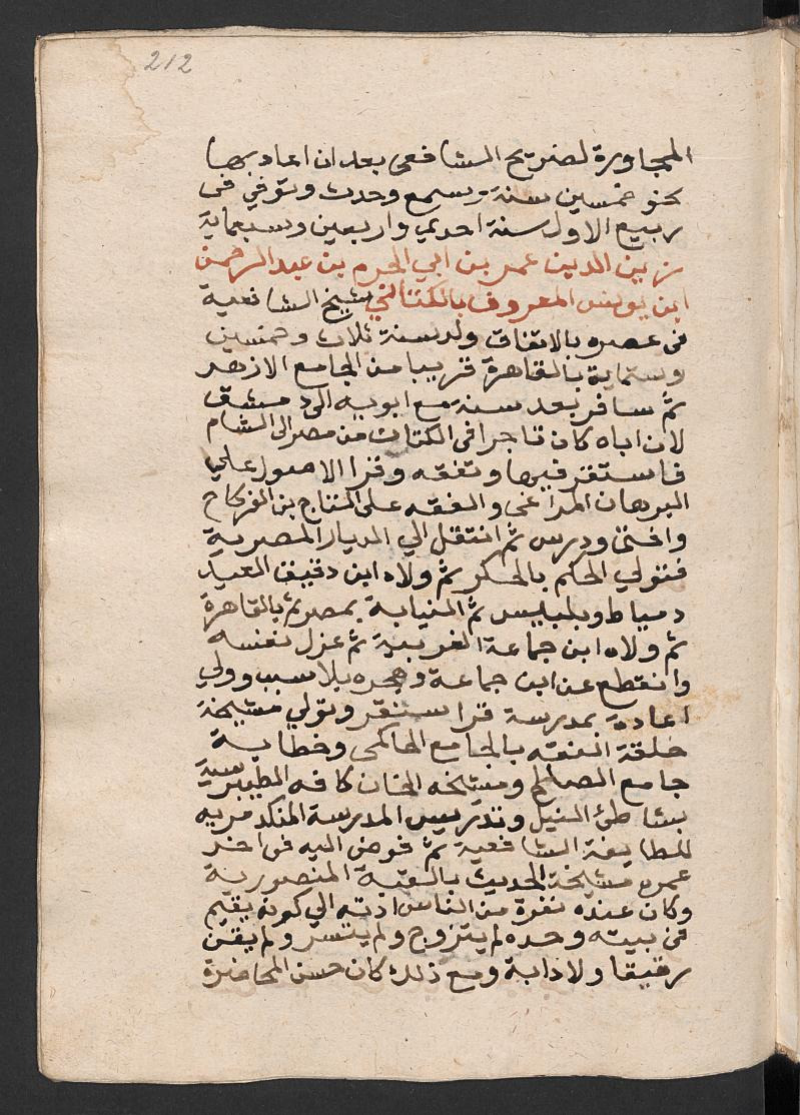 212
المجاورة لضريح الشافعى بعد ان اعاد بها
نحو خمسين سنة وسمع وحدث وتوفي فى
ربيع الاول سنة احدي واربعين وسبعماية
زين الدين عمر بن ابي الحرم بن عبد الرحمن
ابن يونس المعروف بالكتناني شيخ الشافعية
فى عصره بالاتفاق ولد سنة ثلاث وخمسين
وستماية بالقاهرة قريبا من الجامع الازهر
ثم سافر بعد سنة مع ابويه الى دمشق
لان اباه كان تاجرا فى الكتان من مصر الى الشام
فاستقر فيها وتفقه وقرا الاصول علي
البرهان المراغى والفقه على التاج بن الفركاح
وافتى ودرس ثم انتقل الي الديار المصرية
فتولي الحكم بالحكر ثم ولاه ابن دقيق العيد
دمياط وبلبيس ثم النيابة بمصر ثم بالقاهرة
ثم ولاه ابن جماعة الغربية ثم عزل نفسه
وانقطع عن ابن جماعة وهجره بلا سبب وولي
اعادة بمدرسة قراسنقر وتولي مشيخة
حلقة الفقه بالجامع الحاكمى وخطابة
جامع الصالح ومشيخه الخانكافه الطيبرسية
بشاطئ النيل وتدريس المدرسة المنكدمريه
للطايفة الشافعية ثم فوض اليه فى اخر
عمره مشيخة الحديث بالقبة المنصورية
وكان عنده نفرة من الناس ادته الي كونه يقيم
فى بيته وحده لم يتزوج ولم يتسر ولم يقتن
رقيقا ولا دابة ومع ذلك كان حسن المحاضرة